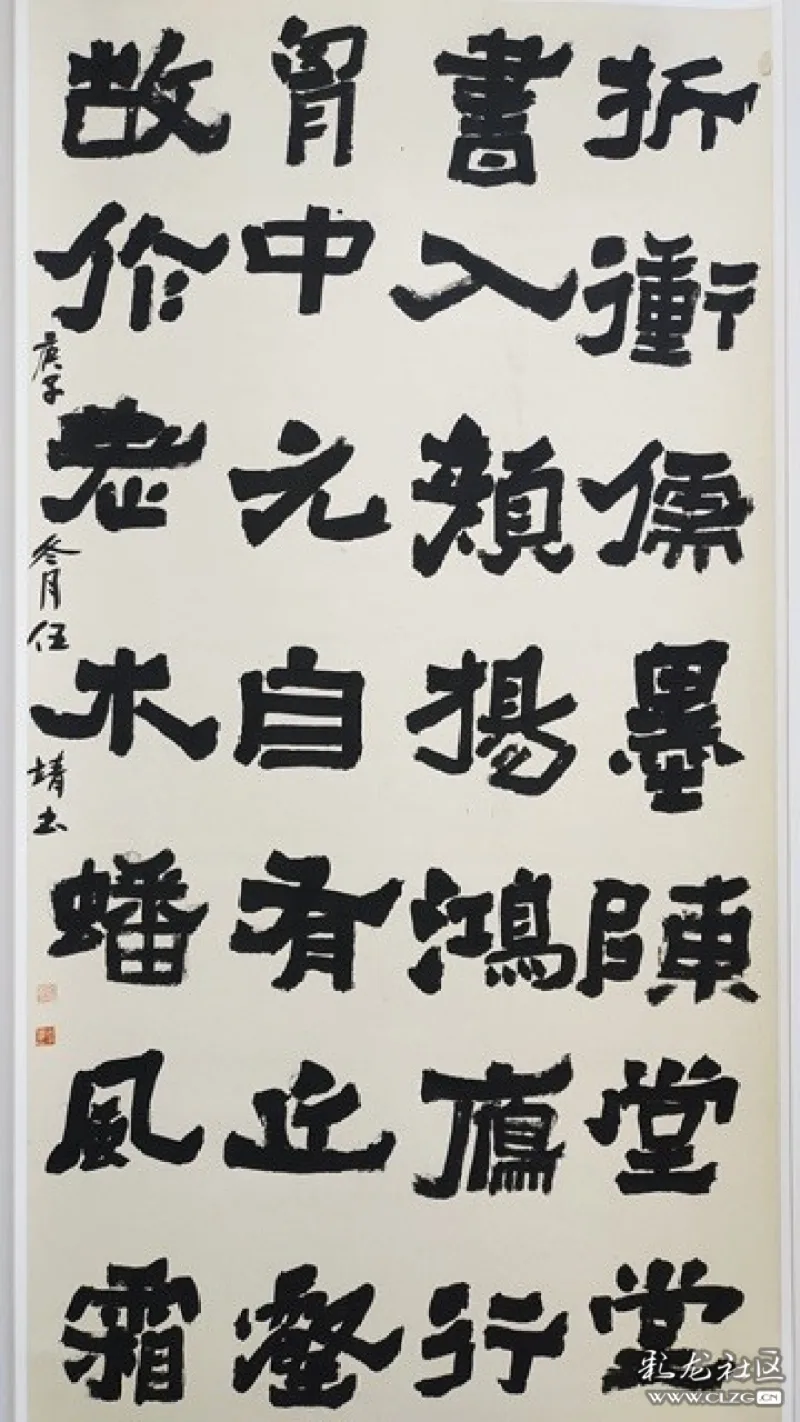 折衝儒墨陳堂堂
書入顏揚鴻鴈行
胷中元自有丘壑
故作老木蟠風霜
庚子冬月伍靖书
彩龙社区
WWW.CLZG.CN